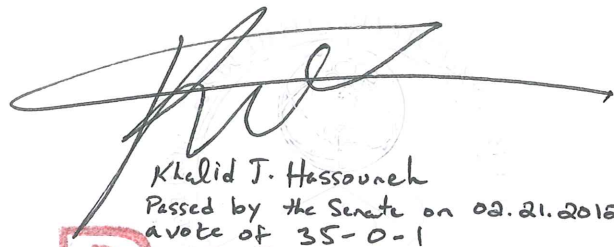 Khalid J. Hassouneh
Passed by the Senate on 02.21.2012
a vote of 35-0-1